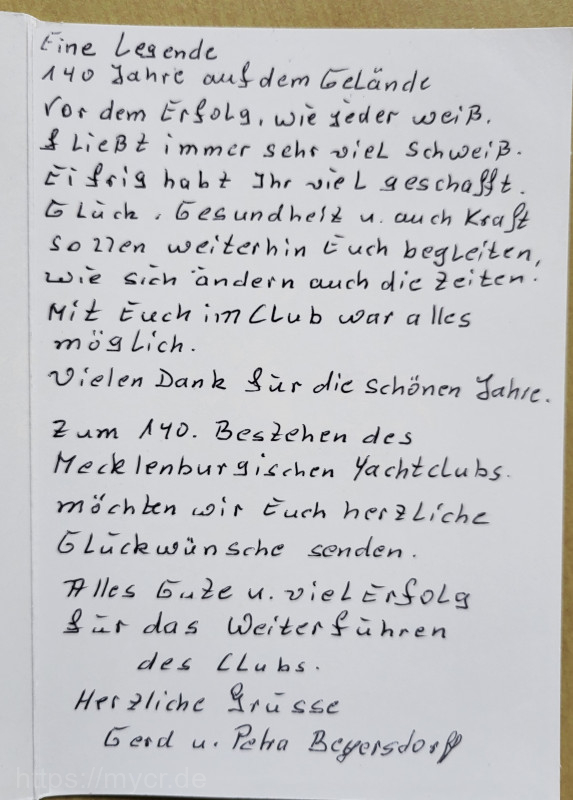 Eine Legende
140 Jahre auf dem Gelände
Vor dem Erfolg, wie jeder weiß,
fließt immer sehr viel Schweiß.
Eifrig habt Ihr viel geschafft.
Glück, Gesundheit u. auch Kraft
sollen weiterhin Euch begleiten,
wie sich ändern auch die Zeiten.
Mit Euch im Club war alles
möglich.
Vielen Dank für die schönen Jahre.
Zum 140. Bestehen des
Mecklenburgischen Yachtclubs.
möchten wir Euch herzliche
Glückwünsche senden.
Alles Gute u. viel Erfolg
für das Weiterführen
des Clubs.
Herzliche Grüsse
Gerd u. Petra Beyersdorff
https://mycr.de